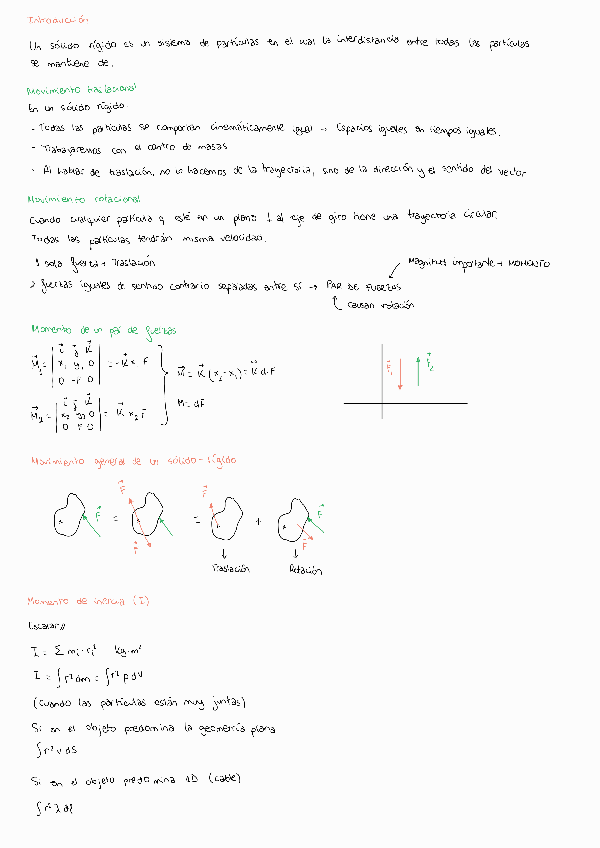 Introducción
Un sólido rígido es un sistema de partículas en el cual la interdistancia entre todas las partículas
se mantiene de.
Movimiento traslacional
En un sólido rígido:
- Todas las partículas se comportan cinemáticamente igual → Espacios iguales en tiempos iguales.
- Trabajaremos con el centro de masas
- Al hablar de traslación, no lo hacemos de la trayectoria, sino de la dirección y el sentido del vector
Movimiento rotacional
Cuando cualquier partícula q está en un plano ⊥ al eje de giro tiene una trayectoria circular.
Todas las partículas tendrán misma velocidad.
1 sola fuerza → Traslación
Magnitud importante → MOMENTO
2 fuerzas iguales de sentido contrario separadas entre sí → PAR DE FUERZAS
causan rotación
Momento de un par de fuerzas
M⃗₁ = | i⃗ j⃗ k⃗ | x₁ y₁ 0 | 0 -F 0 | = -k⃗ x₁ F
M⃗ = k⃗ (x₂-x₁) = k⃗ d·F
M = dF
M⃗₂ = | i⃗ j⃗ k⃗ | x₂ y₂ 0 | 0 F 0 | = k⃗ x₂ F
F⃗₁ F⃗₂
Movimiento general de un sólido-rígido
F⃗ = F⃗ F⃗ = F⃗ + F⃗ F⃗
Traslación Rotación
Momento de inercia (I)
Escalar
I = Σ mᵢ · rᵢ² kg·m²
I = ∫ r² dm = ∫ r² ρ dV
(cuando las partículas están muy juntas)
Si en el objeto predomina la geometría plana
∫ r² ν dS
Si en el objeto predomina 1D (cable)
∫ r² λ dl